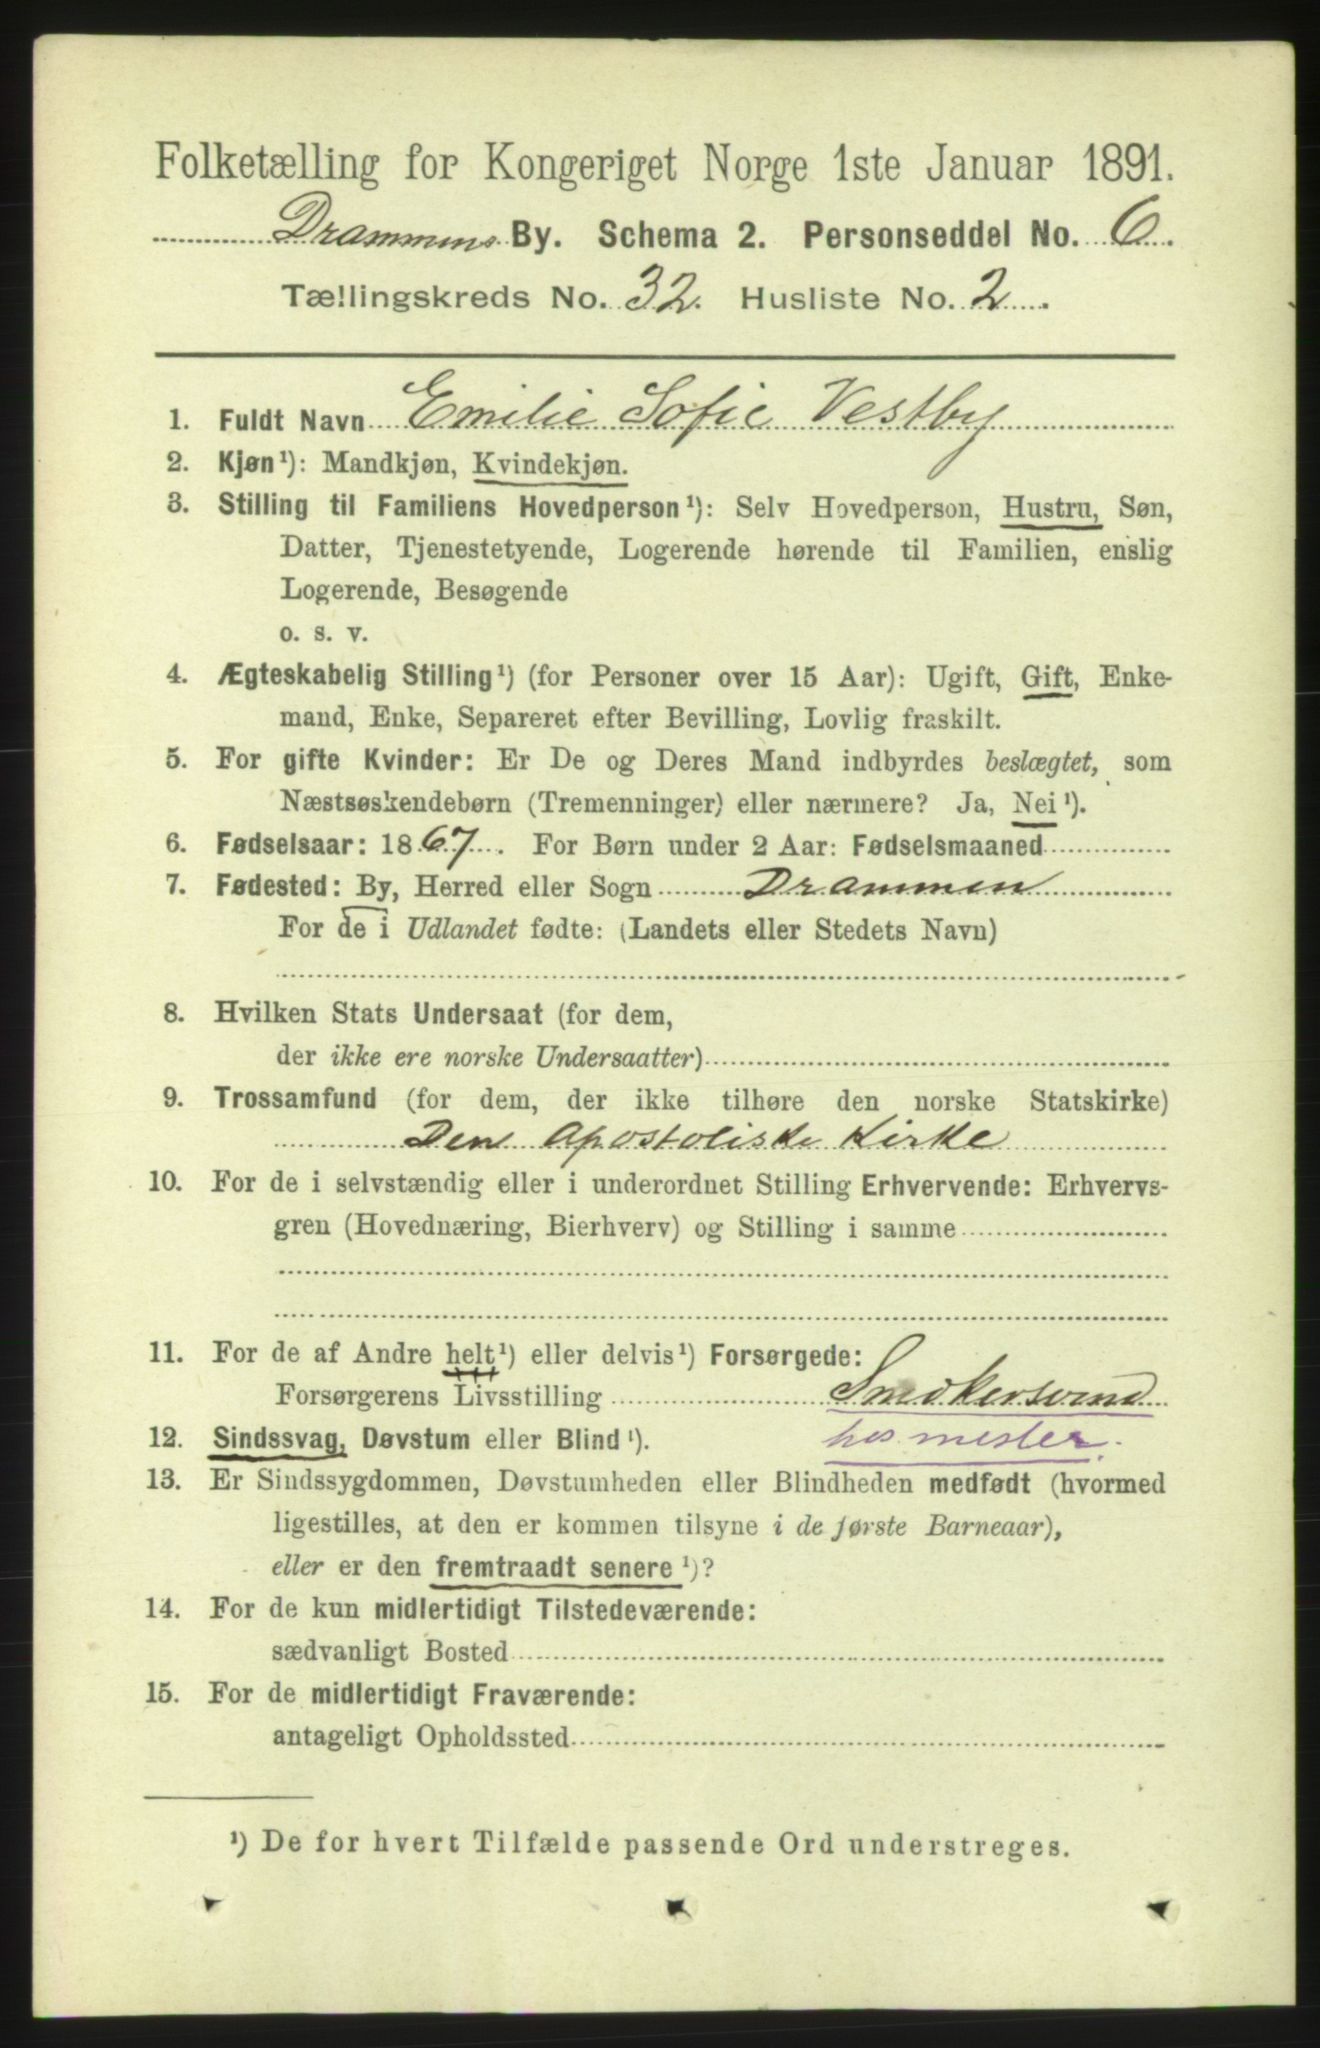 Folketælling for Kongeriget Norge 1ste Januar 1891.
Drammens By. Schema 2. Personseddel No. 6.
Tællingskreds No. 32. Husliste No. 2.
1. Fuldt Navn Emilie Sofie Vestby
2. Kjøn¹): Mandkjøn, Kvindekjøn.
3. Stilling til Familiens Hovedperson¹): Selv Hovedperson, Hustru, Søn,
Datter, Tjenestetyende, Logerende hørende til Familien, enslig
Logerende, Besøgende
o. s. v.
4. Ægteskabelig Stilling¹) (for Personer over 15 Aar): Ugift, Gift, Enke-
mand, Enke, Separeret efter Bevilling, Lovlig fraskilt.
5. For gifte Kvinder: Er De og Deres Mand indbyrdes beslægtet, som
Næstsøskendebørn (Tremenninger) eller nærmere? Ja, Nei¹).
6. Fødselsaar: 1867. For Børn under 2 Aar: Fødselsmaaned
7. Fødested: By, Herred eller Sogn Drammen
For de i Udlandet fødte: (Landets eller Stedets Navn)
8. Hvilken Stats Undersaat (for dem,
der ikke ere norske Undersaatter)
9. Trossamfund (for dem, der ikke tilhøre den norske Statskirke)
Den Apostoliske Kirke
10. For de i selvstændig eller i underordnet Stilling Erhvervende: Erhvervs-
gren (Hovednæring, Bierhverv) og Stilling i samme
11. For de af Andre helt¹) eller delvis¹) Forsørgede:
Forsørgerens Livsstilling Snedkersvend
12. Sindssvag, Døvstum eller Blind¹). hos mester.
13. Er Sindssygdommen, Døvstumheden eller Blindheden medfødt (hvormed
ligestilles, at den er kommen tilsyne i de første Barneaar),
eller er den fremtraadt senere¹)?
14. For de kun midlertidigt Tilstedeværende:
sædvanligt Bosted
15. For de midlertidigt Fraværende:
antageligt Opholdssted
¹) De for hvert Tilfælde passende Ord understreges.